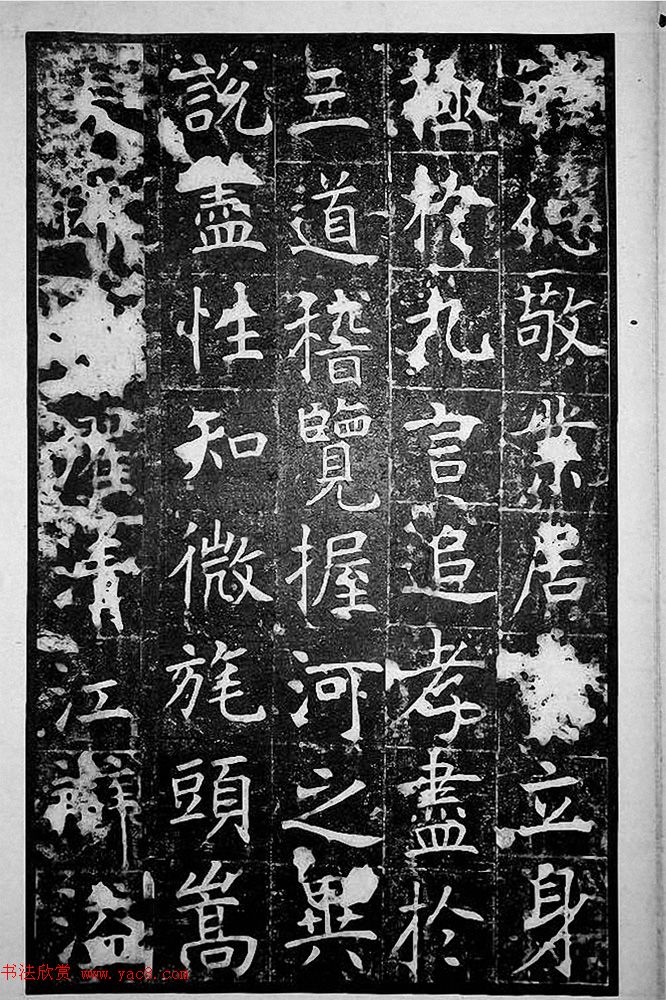 德敬業居立身
極於九言追孝盡於
三道稽覽握河之異
說盡性知微旄頭嵩
耀清江祥溢
书法欣赏 www.yac8.com